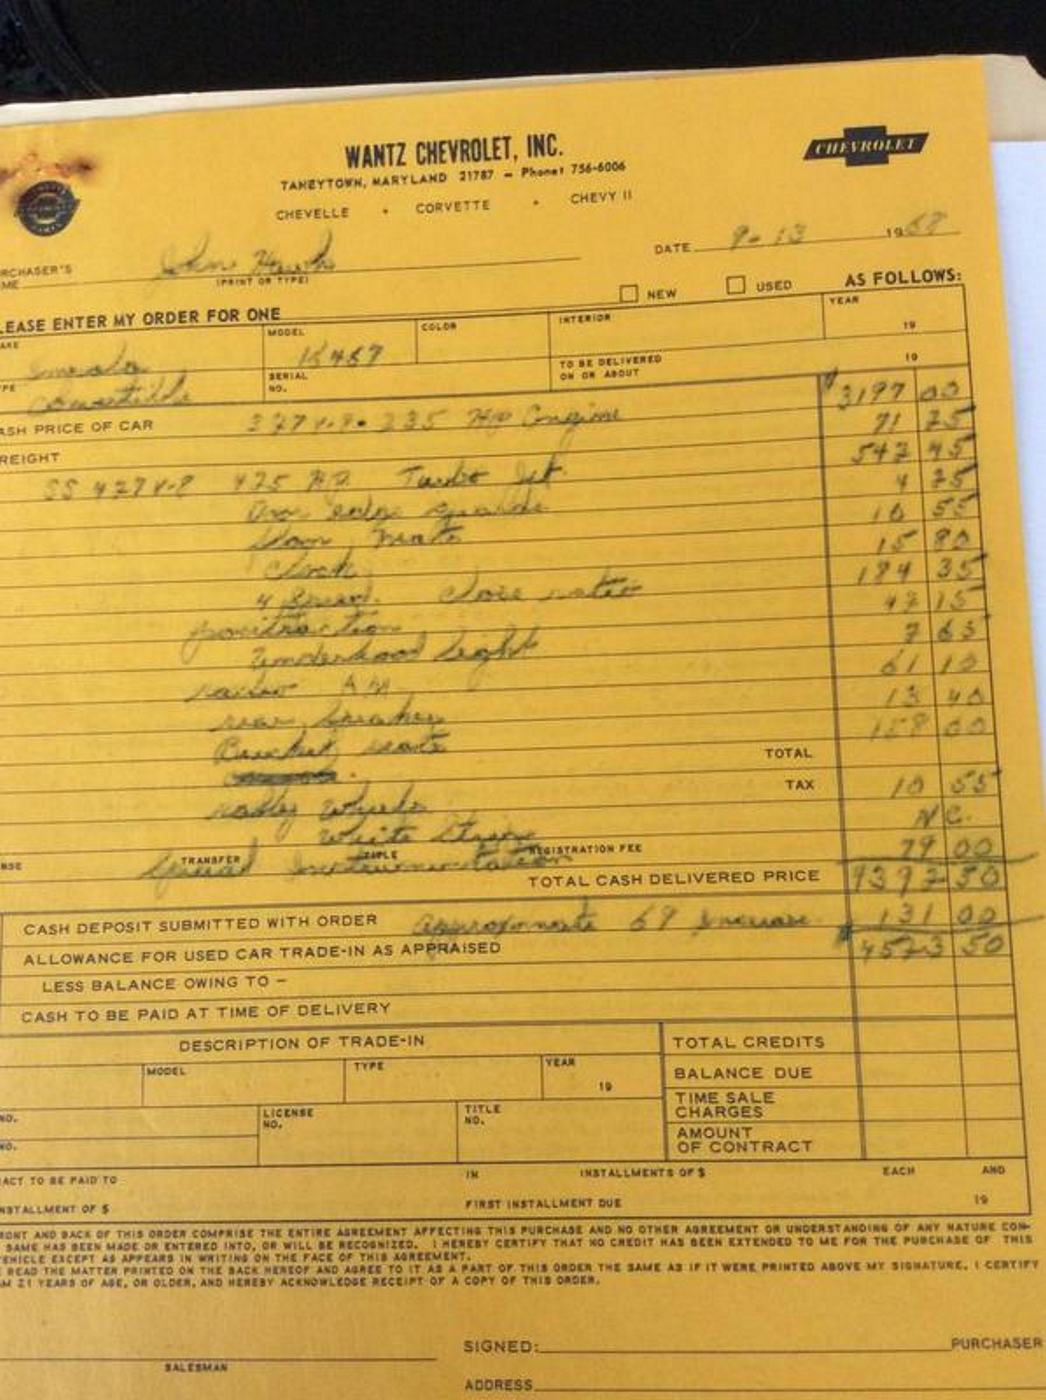 WANTZ CHEVROLET, INC.
CHEVROLET
TANEYTOWN, MARYLAND 21787 — Phone: 756-6006
CHEVELLE • CORVETTE • CHEVY II
DATE 9-13 1968
RCHASER'S
ME John
(PRINT OR TYPE)
NEW USED AS FOLLOWS:
LEASE ENTER MY ORDER FOR ONE
AKE MODEL COLOR INTERIOR YEAR
Impala 16467 19
YPE SERIAL NO. TO BE DELIVERED ON OR ABOUT 19
Convertible
ASH PRICE OF CAR 327 V-8 - 235 HP Engine $3197 00
REIGHT 71 75
SS 427 V-8 425 HP Turbo Jet 542 45
Door edge guards 4 75
Floor Mats 10 55
Clock 15 80
4 Speed close ratio 184 35
positraction 42 15
Underhood light 7 65
radio AM 61 10
rear speaker 13 40
Bucket seats 158 00
TOTAL
TAX
rally wheels 10 55
White Stripe N.C.
NSE TRANSFER TITLE REGISTRATION FEE
Special Instrumentation 79 00
TOTAL CASH DELIVERED PRICE 4392 50
CASH DEPOSIT SUBMITTED WITH ORDER Approximate 69 Increase 131 00
ALLOWANCE FOR USED CAR TRADE-IN AS APPRAISED $4523 50
LESS BALANCE OWING TO –
CASH TO BE PAID AT TIME OF DELIVERY
DESCRIPTION OF TRADE-IN TOTAL CREDITS
MODEL TYPE YEAR 19 BALANCE DUE
TIME SALE CHARGES
NO. LICENSE NO. TITLE NO.
NO. AMOUNT OF CONTRACT
ACT TO BE PAID TO IN INSTALLMENTS OF $ EACH AND
NSTALLMENT OF $ FIRST INSTALLMENT DUE 19
RONT AND BACK OF THIS ORDER COMPRISE THE ENTIRE AGREEMENT AFFECTING THIS PURCHASE AND NO OTHER AGREEMENT OR UNDERSTANDING OF ANY NATURE CON-
SAME HAS BEEN MADE OR ENTERED INTO, OR WILL BE RECOGNIZED. I HEREBY CERTIFY THAT NO CREDIT HAS BEEN EXTENDED TO ME FOR THE PURCHASE OF THIS
EHICLE EXCEPT AS APPEARS IN WRITING ON THE FACE OF THIS AGREEMENT.
READ THE MATTER PRINTED ON THE BACK HEREOF AND AGREE TO IT AS A PART OF THIS ORDER THE SAME AS IF IT WERE PRINTED ABOVE MY SIGNATURE. I CERTIFY
AM 21 YEARS OF AGE, OR OLDER, AND HEREBY ACKNOWLEDGE RECEIPT OF A COPY OF THIS ORDER.
SIGNED: PURCHASER
SALESMAN
ADDRESS